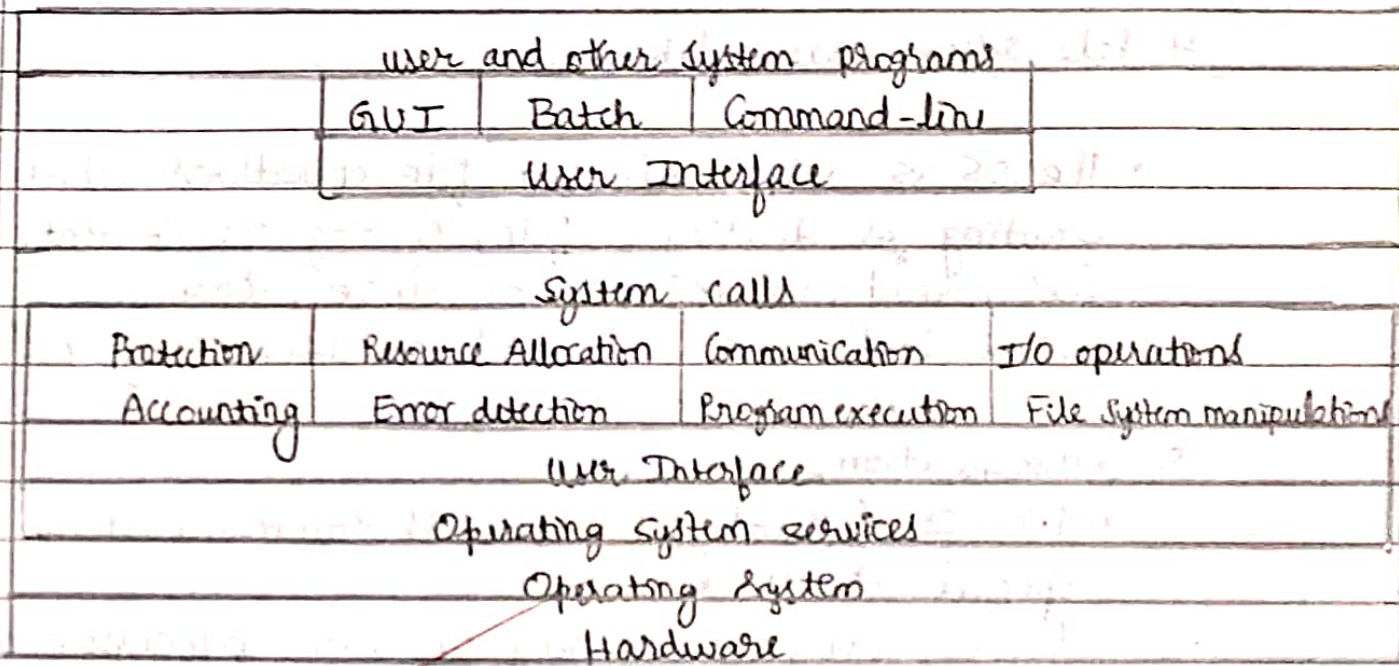 user and other system programs
GUI Batch Command-line
User Interface
System calls
Protection Resource Allocation Communication I/O operations
Accounting Error detection Program execution File System manipulation
User Interface
Operating system services
Operating System
Hardware